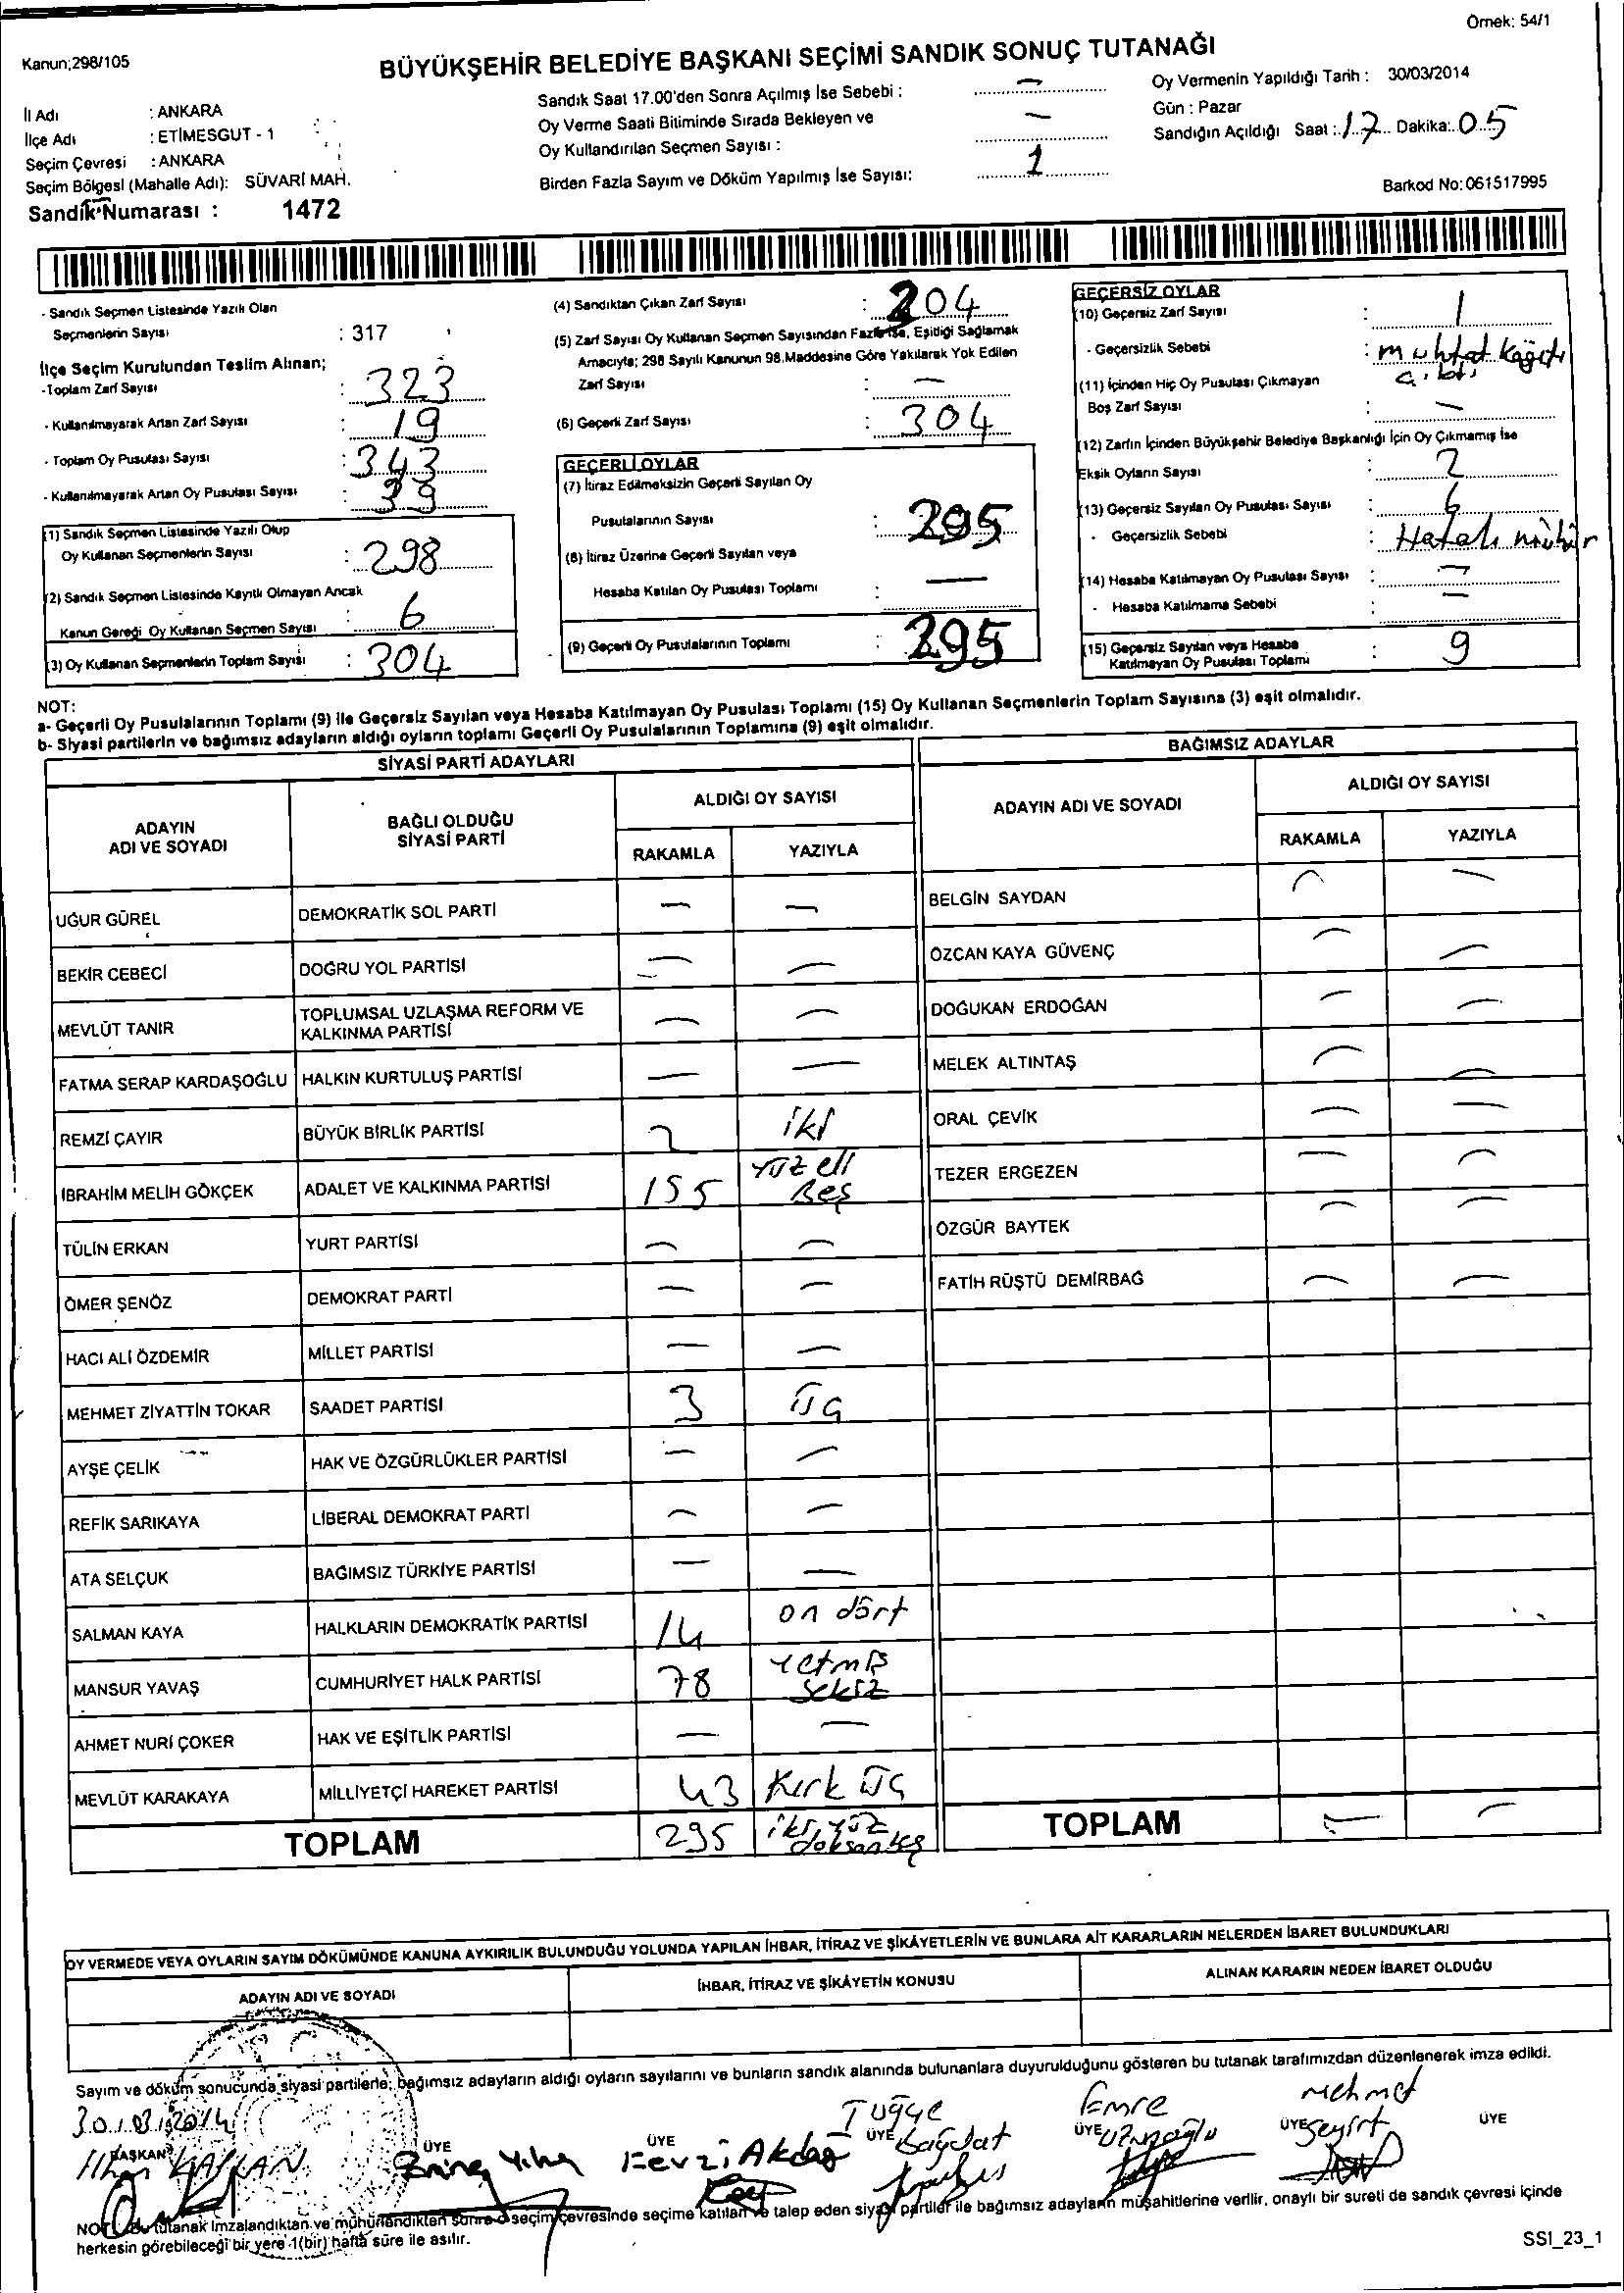 Örnek: 54/1
Kanun;298/105
BÜYÜKŞEHİR BELEDİYE BAŞKANI SEÇİMİ SANDIK SONUÇ TUTANAĞI
İl Adı : ANKARA
İlçe Adı : ETİMESGUT - 1
Seçim Çevresi : ANKARA
Seçim Bölgesi (Mahalle Adı): SÜVARİ MAH.
Sandık Numarası : 1472
Sandık Saat 17.00'den Sonra Açılmış İse Sebebi : —
Oy Verme Saati Bitiminde Sırada Bekleyen ve
Oy Kullandırılan Seçmen Sayısı : —
Birden Fazla Sayım ve Döküm Yapılmış İse Sayısı: 1
Oy Vermenin Yapıldığı Tarih : 30/03/2014
Gün : Pazar
Sandığın Açıldığı Saat : 17 Dakika: 05
Barkod No: 061517995
- Sandık Seçmen Listesinde Yazılı Olan
Seçmenlerin Sayısı : 317
İlçe Seçim Kurulundan Teslim Alınan;
-Toplam Zarf Sayısı : 323
- Kullanılmayarak Artan Zarf Sayısı : 19
- Toplam Oy Pusulası Sayısı : 343
- Kullanılmayarak Artan Oy Pusulası Sayısı : 39
(1) Sandık Seçmen Listesinde Yazılı Olup
Oy Kullanan Seçmenlerin Sayısı : 298
(2) Sandık Seçmen Listesinde Kayıtlı Olmayan Ancak
Kanun Gereği Oy Kullanan Seçmen Sayısı : 6
(3) Oy Kullanan Seçmenlerin Toplam Sayısı : 304
(4) Sandıktan Çıkan Zarf Sayısı : 204
(5) Zarf Sayısı Oy Kullanan Seçmen Sayısından Fazla İse, Eşitliği Sağlamak
Amacıyla; 298 Sayılı Kanunun 98.Maddesine Göre Yakılarak Yok Edilen
Zarf Sayısı : —
(6) Geçerli Zarf Sayısı : 304
GEÇERLİ OYLAR
(7) İtiraz Edilmeksizin Geçerli Sayılan Oy
Pusulalarının Sayısı : 295
(8) İtiraz Üzerine Geçerli Sayılan veya
Hesaba Katılan Oy Pusulası Toplamı : —
(9) Geçerli Oy Pusulalarının Toplamı : 295
GEÇERSİZ OYLAR
(10) Geçersiz Zarf Sayısı : 1
- Geçersizlik Sebebi : muhtar kağıdı
(11) İçinden Hiç Oy Pusulası Çıkmayan
Boş Zarf Sayısı : —
(12) Zarfın İçinden Büyükşehir Belediye Başkanlığı İçin Oy Çıkmamış İse
Eksik Oyların Sayısı : 2
(13) Geçersiz Sayılan Oy Pusulası Sayısı : 6
- Geçersizlik Sebebi : Hatalı mühür
(14) Hesaba Katılmayan Oy Pusulası Sayısı : —
- Hesaba Katılmama Sebebi : —
(15) Geçersiz Sayılan veya Hesaba
Katılmayan Oy Pusulası Toplamı : 9
NOT:
a- Geçerli Oy Pusulalarının Toplamı (9) ile Geçersiz Sayılan veya Hesaba Katılmayan Oy Pusulası Toplamı (15) Oy Kullanan Seçmenlerin Toplam Sayısına (3) eşit olmalıdır.
b- Siyasi partilerin ve bağımsız adayların aldığı oyların toplamı Geçerli Oy Pusulalarının Toplamına (9) eşit olmalıdır.
SİYASİ PARTİ ADAYLARI
ADAYIN ADI VE SOYADI BAĞLI OLDUĞU SİYASİ PARTİ ALDIĞI OY SAYISI
RAKAMLA YAZIYLA
UĞUR GÜREL DEMOKRATİK SOL PARTİ — —
BEKİR CEBECİ DOĞRU YOL PARTİSİ — —
MEVLÜT TANIR TOPLUMSAL UZLAŞMA REFORM VE KALKINMA PARTİSİ — —
FATMA SERAP KARDAŞOĞLU HALKIN KURTULUŞ PARTİSİ — —
REMZİ ÇAYIR BÜYÜK BİRLİK PARTİSİ 2 iki
İBRAHİM MELİH GÖKÇEK ADALET VE KALKINMA PARTİSİ 155 Yüz elli Beş
TÜLİN ERKAN YURT PARTİSİ — —
ÖMER ŞENÖZ DEMOKRAT PARTİ — —
HACI ALİ ÖZDEMİR MİLLET PARTİSİ — —
MEHMET ZİYATTİN TOKAR SAADET PARTİSİ 3 üç
AYŞE ÇELİK HAK VE ÖZGÜRLÜKLER PARTİSİ — —
REFİK SARIKAYA LİBERAL DEMOKRAT PARTİ — —
ATA SELÇUK BAĞIMSIZ TÜRKİYE PARTİSİ — —
SALMAN KAYA HALKLARIN DEMOKRATİK PARTİSİ 14 on dört
MANSUR YAVAŞ CUMHURİYET HALK PARTİSİ 78 Yetmiş sekiz
AHMET NURİ ÇOKER HAK VE EŞİTLİK PARTİSİ — —
MEVLÜT KARAKAYA MİLLİYETÇİ HAREKET PARTİSİ 43 Kırk üç
TOPLAM 295 iki yüz doksan beş
BAĞIMSIZ ADAYLAR
ADAYIN ADI VE SOYADI ALDIĞI OY SAYISI
RAKAMLA YAZIYLA
BELGİN SAYDAN — —
ÖZCAN KAYA GÜVENÇ — —
DOĞUKAN ERDOĞAN — —
MELEK ALTINTAŞ — —
ORAL ÇEVİK — —
TEZER ERGEZEN — —
ÖZGÜR BAYTEK — —
FATİH RÜŞTÜ DEMİRBAĞ — —
TOPLAM — —
OY VERMEDE VEYA OYLARIN SAYIM DÖKÜMÜNDE KANUNA AYKIRILIK BULUNDUĞU YOLUNDA YAPILAN İHBAR, İTİRAZ VE ŞİKÂYETLERİN VE BUNLARA AİT KARARLARIN NELERDEN İBARET BULUNDUKLARI
ADAYIN ADI VE SOYADI İHBAR, İTİRAZ VE ŞİKÂYETİN KONUSU ALINAN KARARIN NEDEN İBARET OLDUĞU
Sayım ve döküm sonucunda siyasi partilerle; bağımsız adayların aldığı oyların sayılarını ve bunların sandık alanında bulunanlara duyurulduğunu gösteren bu tutanak tarafımızdan düzenlenerek imza edildi.
30.03.2014
BAŞKAN ÜYE ÜYE ÜYE ÜYE ÜYE ÜYE
Fevzi Akdağ
Tuğçe Bağdat
Emre
Mehmet Seyirt
NOT: Bu tutanak imzalandıktan ve mühürlendikten sonra o seçim çevresinde seçime katılan ve talep eden siyasi partiler ile bağımsız adayların müşahitlerine verilir, onaylı bir sureti de sandık çevresi içinde
herkesin görebileceği bir yere 1(bir) hafta süre ile asılır.
SSI_23_1